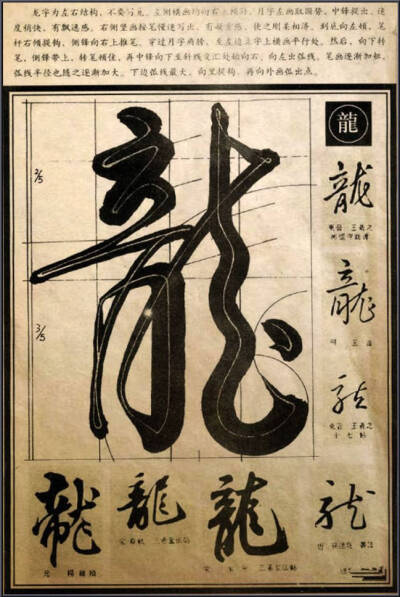 龙字为左右结构，不要写允。左侧横画均向右上倾斜，月字左画取弧势。中锋提出，速
度稍快，有飘逸感。右侧竖画按笔慢速写出，有凝重感，使之刚柔相济。到底向左顿，笔
杆右倾提钩，侧锋向右上推笔，穿过月字两横，至左边立字上横画平行处。然后，向下转
笔，侧锋带上，转笔顿住，再中锋向下至斜线交汇处始向右，向左出弧线，笔画逐渐加粗，
弧线半径也随之逐渐加大。下边弧线最大，向里提钩，再向外画弧出点。
龍
2/5
3/5
龍
龍
東晉 王羲之
龍
明 王
龍
東晉 王羲之
十七帖
龍
龍
龍
龍
元
宋
宋